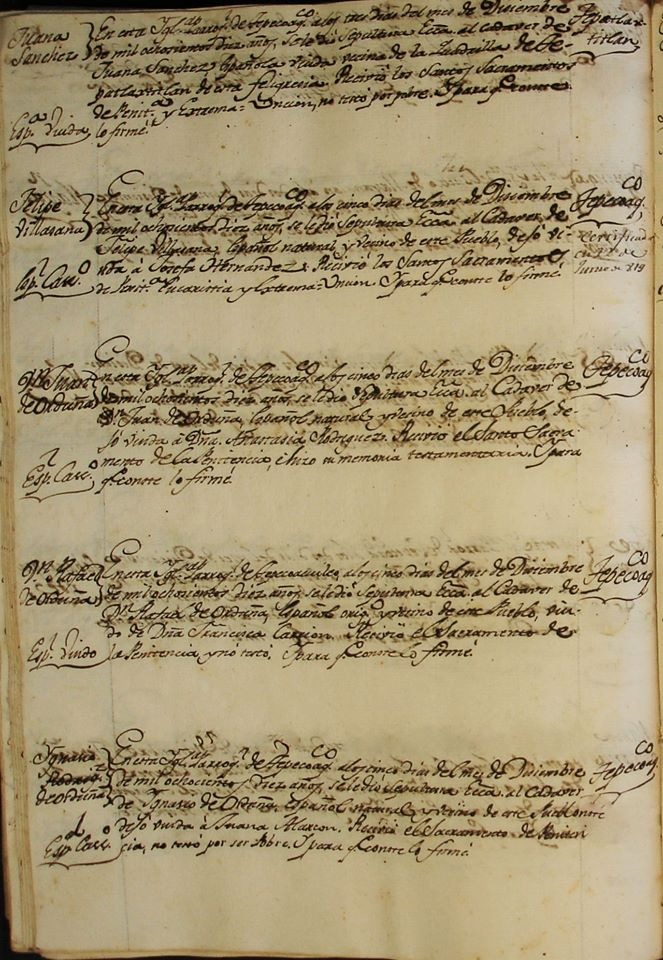 Juana Sanchez
Esp.a Viuda
En esta Ygl.a Parroq.l de Tepecoaq.co a los tres dias del mes de Diciembre
de mil ochocientos diez años, se le dió sepultura Ecca. al cadaver de
Juana Sanchez, Española viuda vecina de la Quadrilla de Te-
patlaxtitlan de esta feligrecia. Recivió los Santos Sacramentos
de Penit.a y Extrema-Uncion, no testó por pobre. Y para q.e conste
lo firmé.
Tepatlax-
titlan
Felipe
Villasana
Esp.l Cas.o
En esta Ygl.a Parroq.l de Tepecoaq.co a los cinco dias del mes de Diciembre
de mil ochocientos diez años, se le dió Sepultura Ecca. al Cadaver de
Felipe Villasana, Español natural, y Vecino de este Pueblo, dejó vi-
uda à Josefa Hernandez. Recivió los Santos Sacramentos
de Penit.a Eucarristia y Extrema-Uncion. Y para q.e conste lo firmé
Tepecoaq.co
Certificada
en
de
Junio de 819
D.n Juan
de Orduña
Esp.l Cas.o
En esta Ygl.a Parroq.l de Tepecoaq.co a los cinco dias del mes de Diciembre
de mil ochocientos diez años, se le dió Sepultura Ecca. al Cadaver de
D.n Juan de Orduña, Español natural y vecino de este Pueblo, de-
jó viuda à Dña. Anastasia Rodriguez. Recivió el Santo Sacra
mento de la Penitencia, è hizo su memoria testamentaria. Y para
q.e conste lo firmé.
Tepecoaq.co
D.n Rafael
de Orduña
Esp.l Viudo
En esta Ygl.a Parroq.l de Tepecoacuilco, a los cinco dias del mes de Diciembre
de mil ochocientos diez años, se le dió sepultura Ecca. al Cadaver de
D.n Rafael de Orduña, Español orig.o y vecino de este Pueblo, viu-
do de Dña Francisca Carrion. Recivió el Sacramento de
la Penitencia, y no testó. Y para q.e conste lo firmé.
Tepecoaq.co
Ygnasio
Rodrig.z
de Orduña
Esp.l Cas.o
En esta Ygl.a Parroq.l de Tepecoaq.co a los cinco dias del mes de Diciembre
de mil ochocientos diez años, se le dió Sepultura Ecca. al Cadaver
de Ygnasio de Orduña, Español natural y vecino de este Pueblo
dejó viuda à Juana Alarcon. Recivió el Sacramento de Peniten
cia, no testó por ser Pobre. Y para q.e conste lo firmé.
Tepecoaq.co